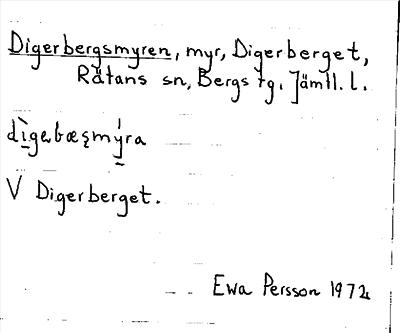 Digerbergsmyren, myr, Digerberget,
Rätans sn, Bergs tg. Jämtl. l.
dìgabæșmýra
V Digerberget.
Ewa Persson 1972